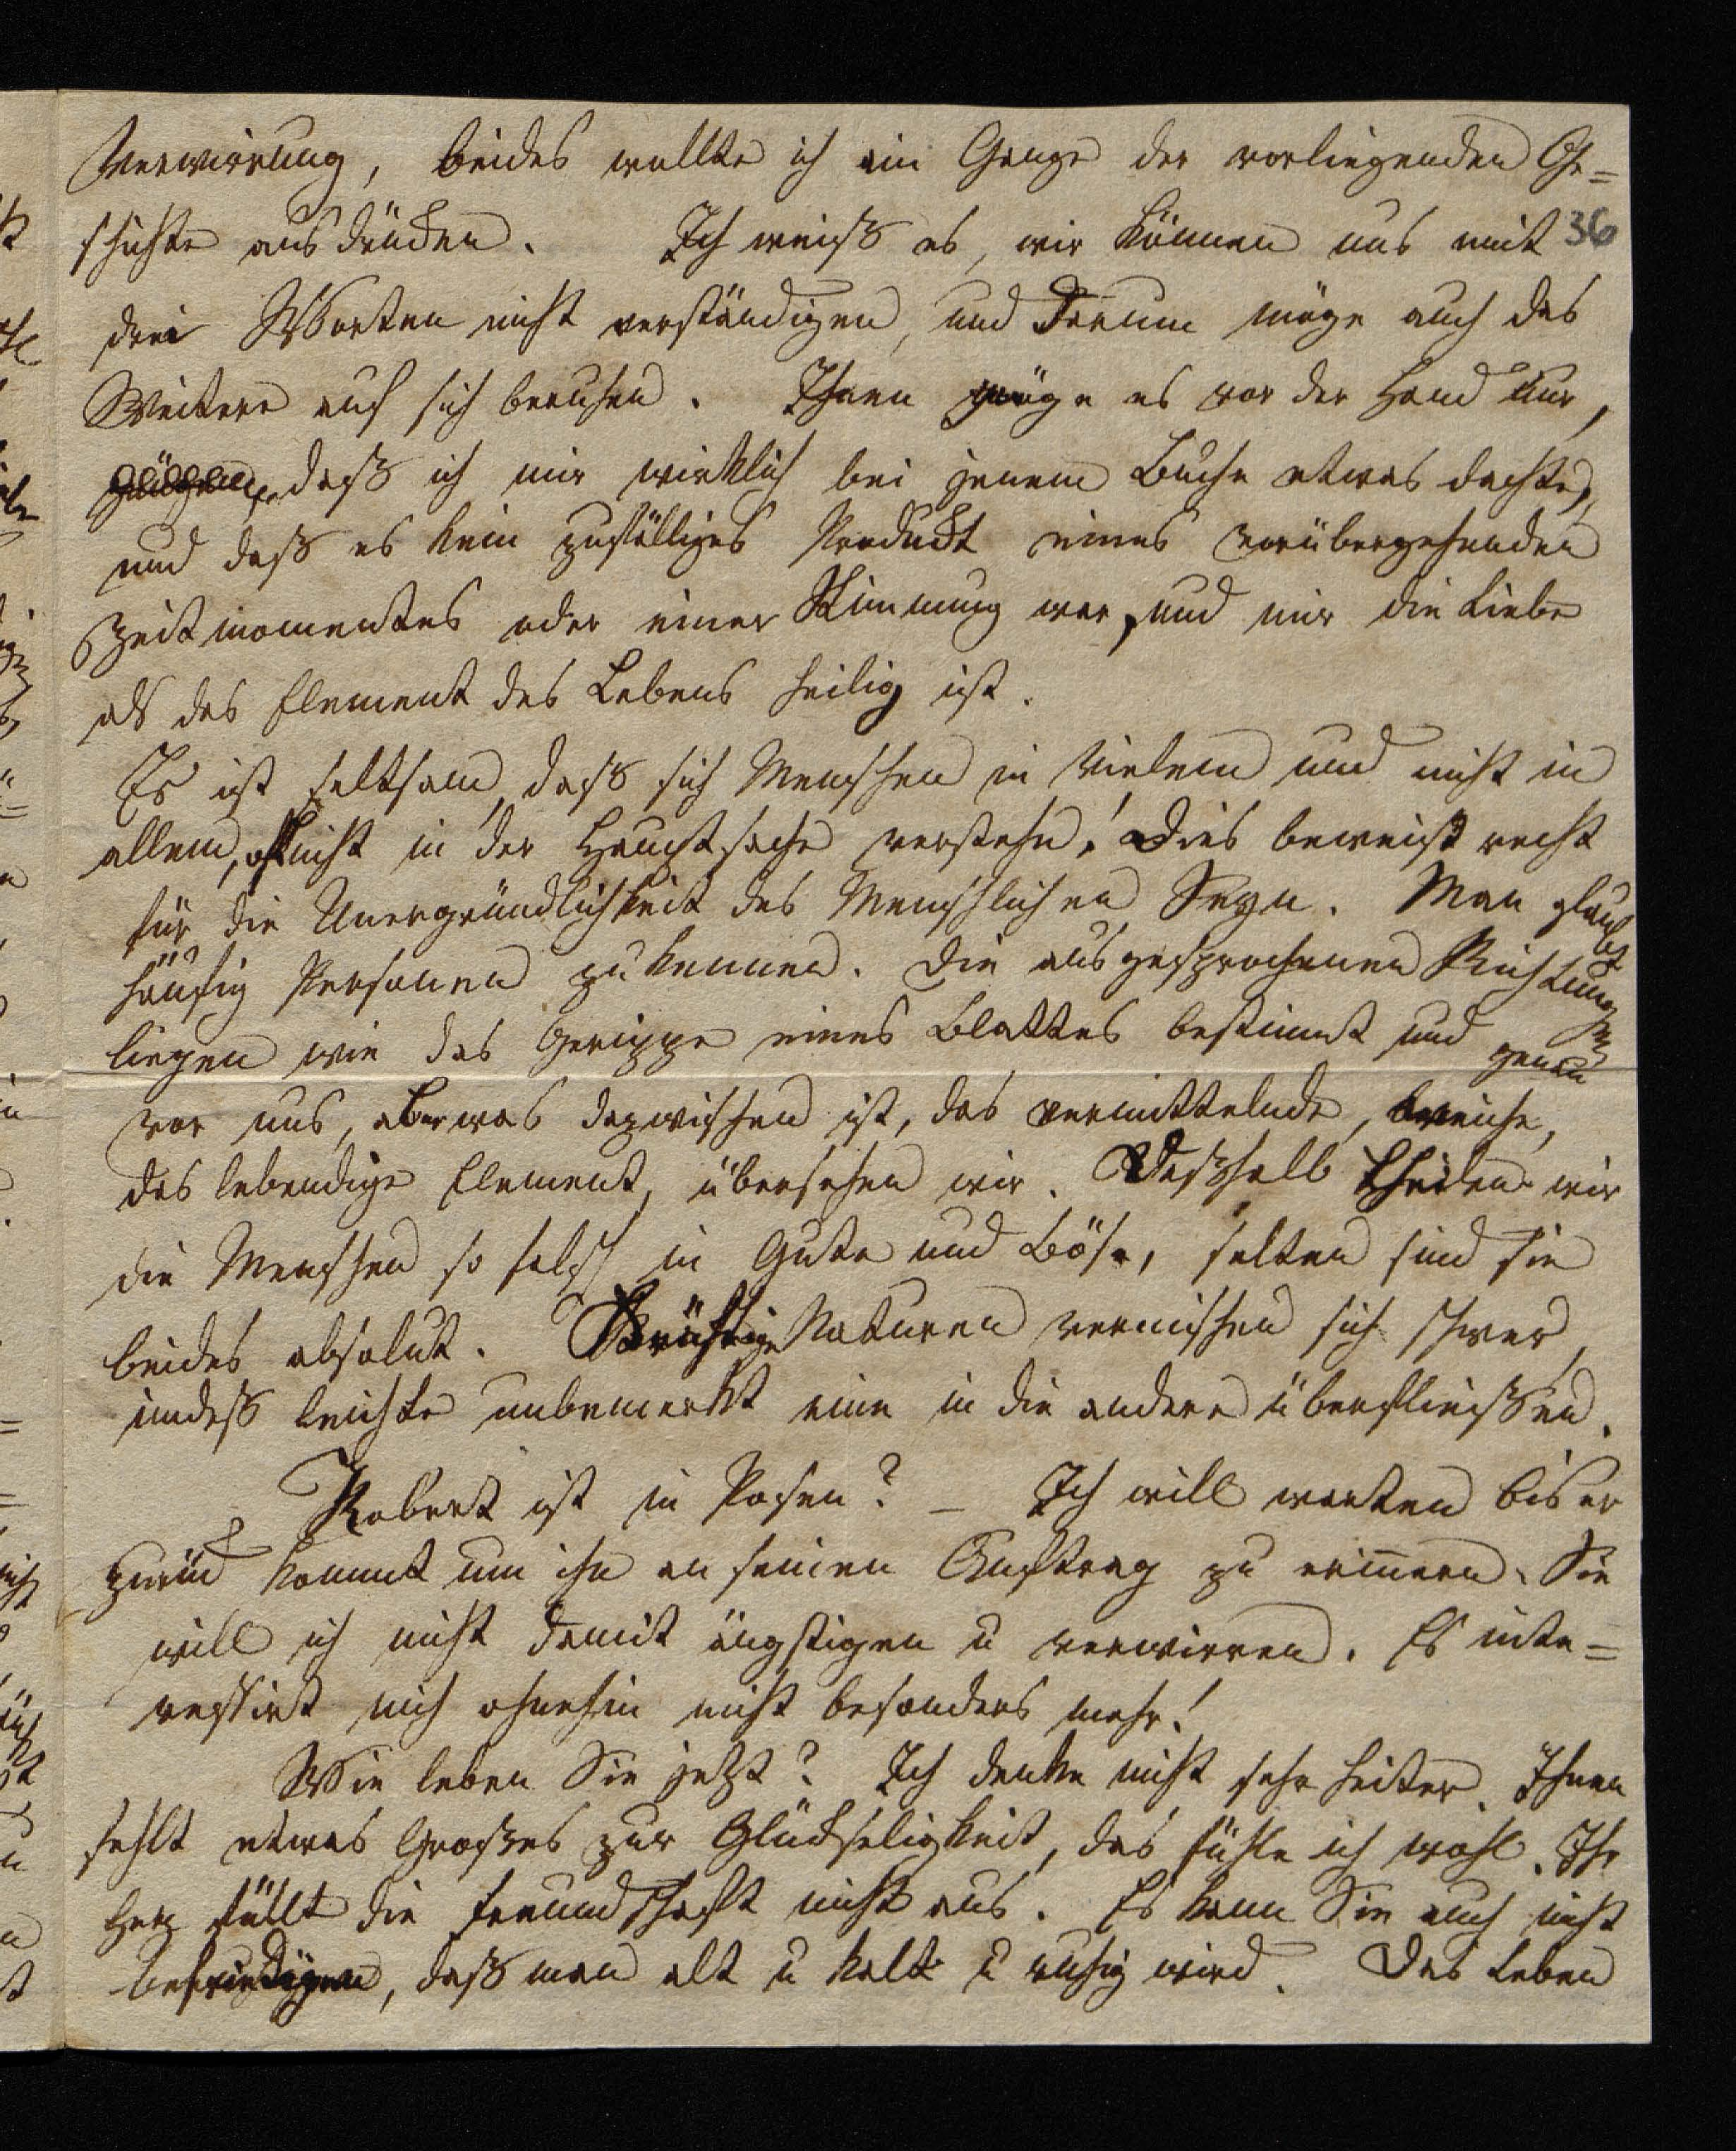 Verwirrung, beides wollte ich im Gange der vorliegenden Ge=
schichte ausdrücken. Ich weiß es, wir können uns mit 36
drei Worten nicht verständigen, und darum möge auch das
Weitere auf sich beruhen. Ihnen gnüge es vor der Hand nur,
daß ich mir wirklich bei jenem Buche etwas dachte,
und daß es kein zufälliges Produckt eines vorübergehenden
Zeitmomentes oder einer Stimmung war, und mir die Liebe
als das Element des Lebens heilig ist.
Es ist seltsam, daß sich Menschen in Vielem und nicht in
allem, oft nicht in der Hauptsache verstehn! Dies beweist recht
für die Unergründlichkeit des Menschlichen Seyn. Man glaubt
häufig Personen zu kennen. Die ausgesprochenen Richtungen
liegen wie das Gerippe eines Blattes bestimmt und genau
vor uns, aber was dazwischen ist, das vermittelnde, weiche,
das lebendige Element, übersehen wir. Deßhalb theilen wir
die Menschen so falsch in Gute und Böse, selten sind sie
beides absolut. Kräftige Naturen vermischen sich schwer,
indeß leichte unbemerkt eine in die andere überfließen.
Robert ist in Posen? – Ich will warten bis er
zurück kommt um ihn an seinen Auftrag zu erinnern. Sie
will ich nicht damit ängstigen u verwirren. Es inte=
ressirt mich ohnehin nicht besonders mehr!
Wie leben Sie jetzt? Ich denke nicht sehr heiter. Ihnen
fehlt etwas Großes zur Glückseligkeit, das fühle ich wohl. Ihr
Herz füllt die Freundschaft nicht aus. Es kann Sie auch nicht
befriedigen, daß man alt u kalt u ruhig wird. Das Leben